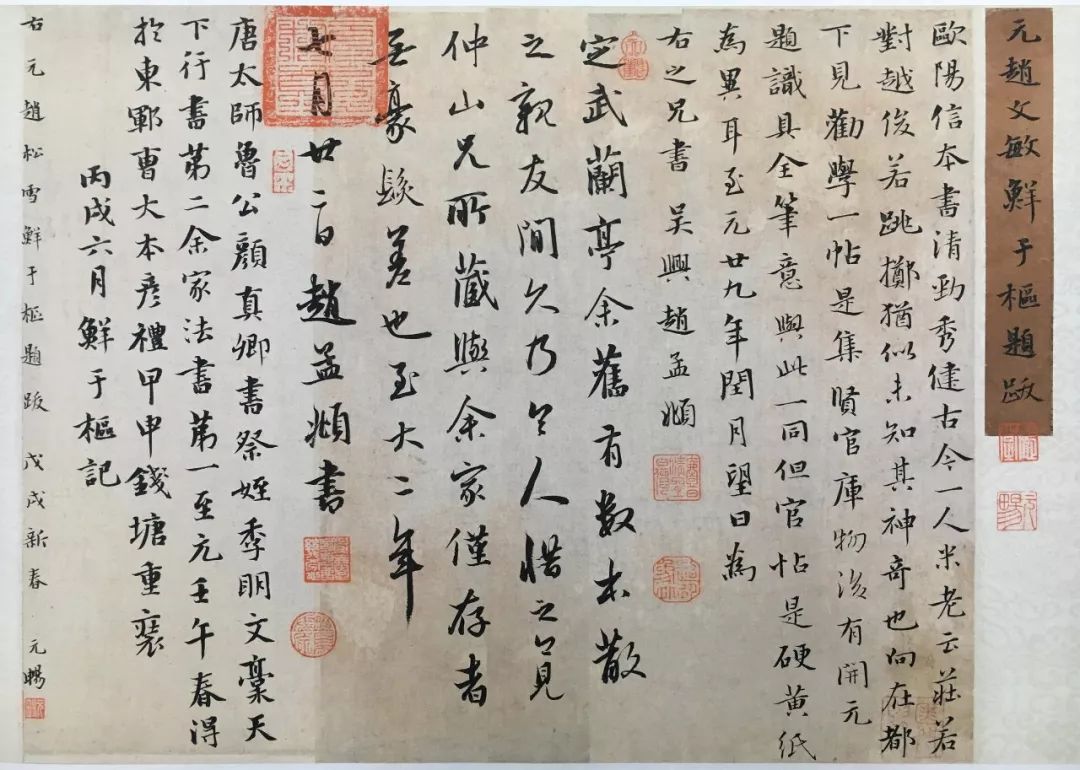 元趙文敏鮮于樞題跋
歐陽信本書清勁秀健古今一人米老云莊若
對越俊若跳擲猶似未知其神奇也向在都
下見勸學一帖是集賢官庫物後有開元
題識具全筆意與此一同但官帖是硬黃紙
為異耳至元廿九年閏月望日為
右之兄書吳興趙孟頫
定武蘭亭余舊有數本散
之親友間久乃令人惜之見
仲山兄所藏與余家僅存者
無豪髮差也至大二年
七月廿二日趙孟頫書
唐太師魯公顏真卿書祭姪季明文稾天
下行書第二余家法書第一至元壬午春得
於東鄆曹大本彦禮甲申錢塘重裝
丙戌六月鮮于樞記
右元趙松雪鮮于樞題跋戊戌新春元暢